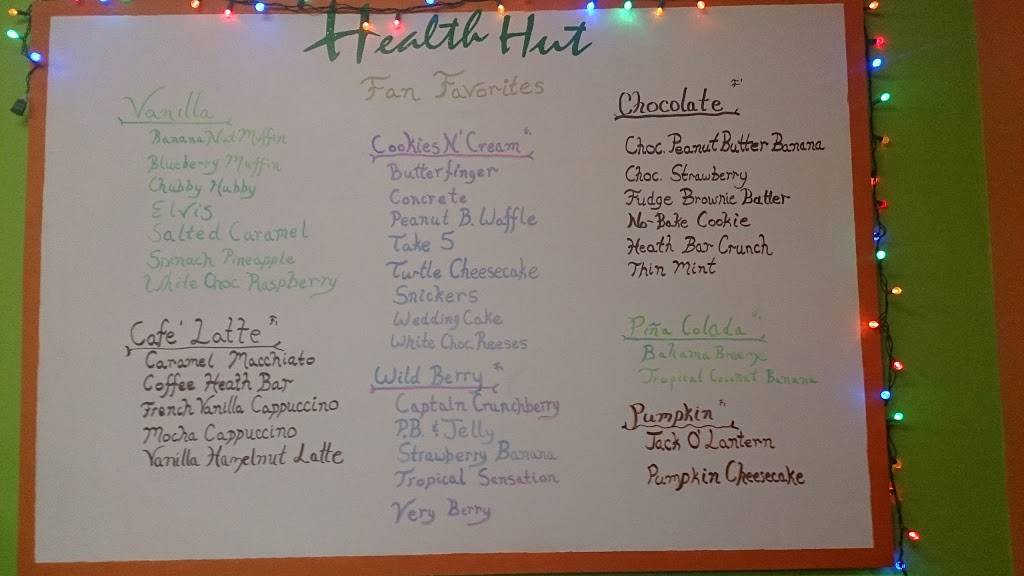 Health Hut
Fan Favorites
Vanilla
Banana Nut Muffin
Blueberry Muffin
Chubby Hubby
Elvis
Salted Caramel
Spinach Pineapple
White Choc. Raspberry
Café Latte
Caramel Macchiato
Coffee Heath Bar
French Vanilla Cappuccino
Mocha Cappuccino
Vanilla Hazelnut Latte
Cookies N' Cream
Butterfinger
Concrete
Peanut B. Waffle
Take 5
Turtle Cheesecake
Snickers
Wedding Cake
White Choc. Reeses
Wild Berry
Captain Crunchberry
P.B. & Jelly
Strawberry Banana
Tropical Sensation
Very Berry
Chocolate
Choc. Peanut Butter Banana
Choc. Strawberry
Fudge Brownie Batter
No-Bake Cookie
Heath Bar Crunch
Thin Mint
Piña Colada
Bahama Breeze
Tropical Coconut Banana
Pumpkin
Jack O'Lantern
Pumpkin Cheesecake